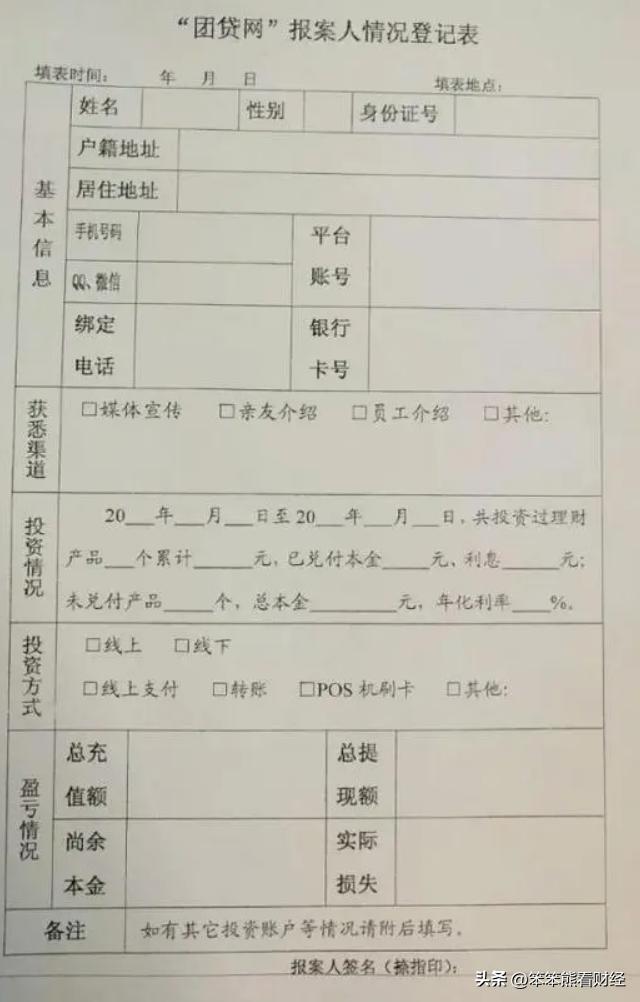 “团贷网”报案人情况登记表
填表时间： 年 月 日 填表地点：
基本信息
姓名 性别 身份证号
户籍地址
居住地址
手机号码 平台账号
QQ、微信
绑定电话 银行卡号
获悉渠道
□媒体宣传 □亲友介绍 □员工介绍 □其他：
投资情况
20___年___月___日至20___年___月___日，共投资过理财
产品___个累计______元，已兑付本金_____元、利息______元；
未兑付产品_____个，总本金_________元，年化利率____%。
投资方式
□线上 □线下
□线上支付 □转账 □POS 机刷卡 □其他：
盈亏情况
总充值额 总提现额
尚余本金 实际损失
备注 如有其它投资账户等情况请附后填写。
报案人签名（捺指印）：
头条 @笨笨熊看财经